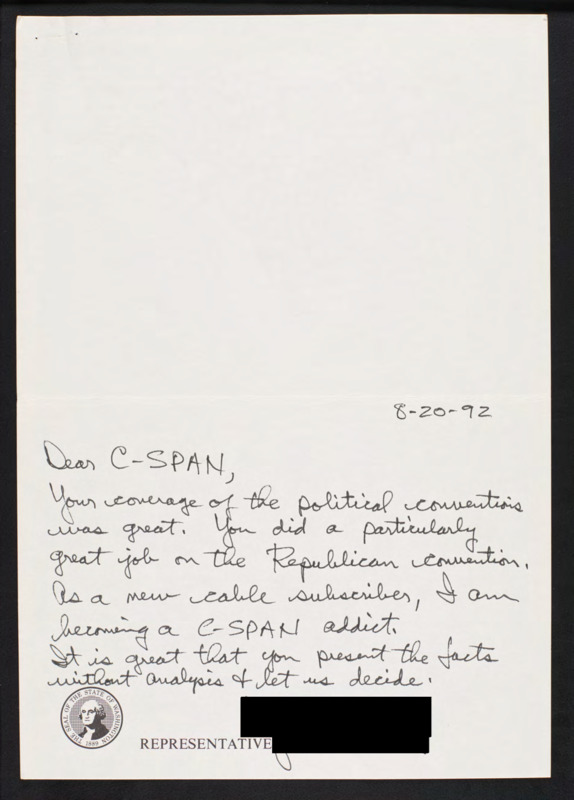 8-20-92
Dear C-SPAN,
Your coverage of the political conventions
was great. You did a particularly
great job on the Republican convention.
As a new cable subscriber, I am
becoming a C-SPAN addict.
It is great that you present the facts
without analysis & let us decide.
THE SEAL OF THE STATE OF WASHINGTON
1889
REPRESENTATIVE